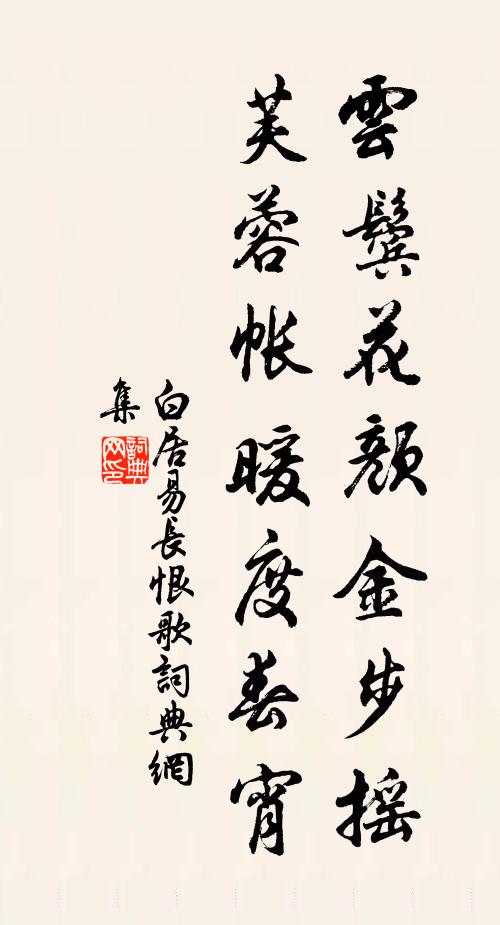 雲鬢花顏金步摇
芙蓉帐暖度春宵
白居易長恨歌詞典網
集
詞典网印